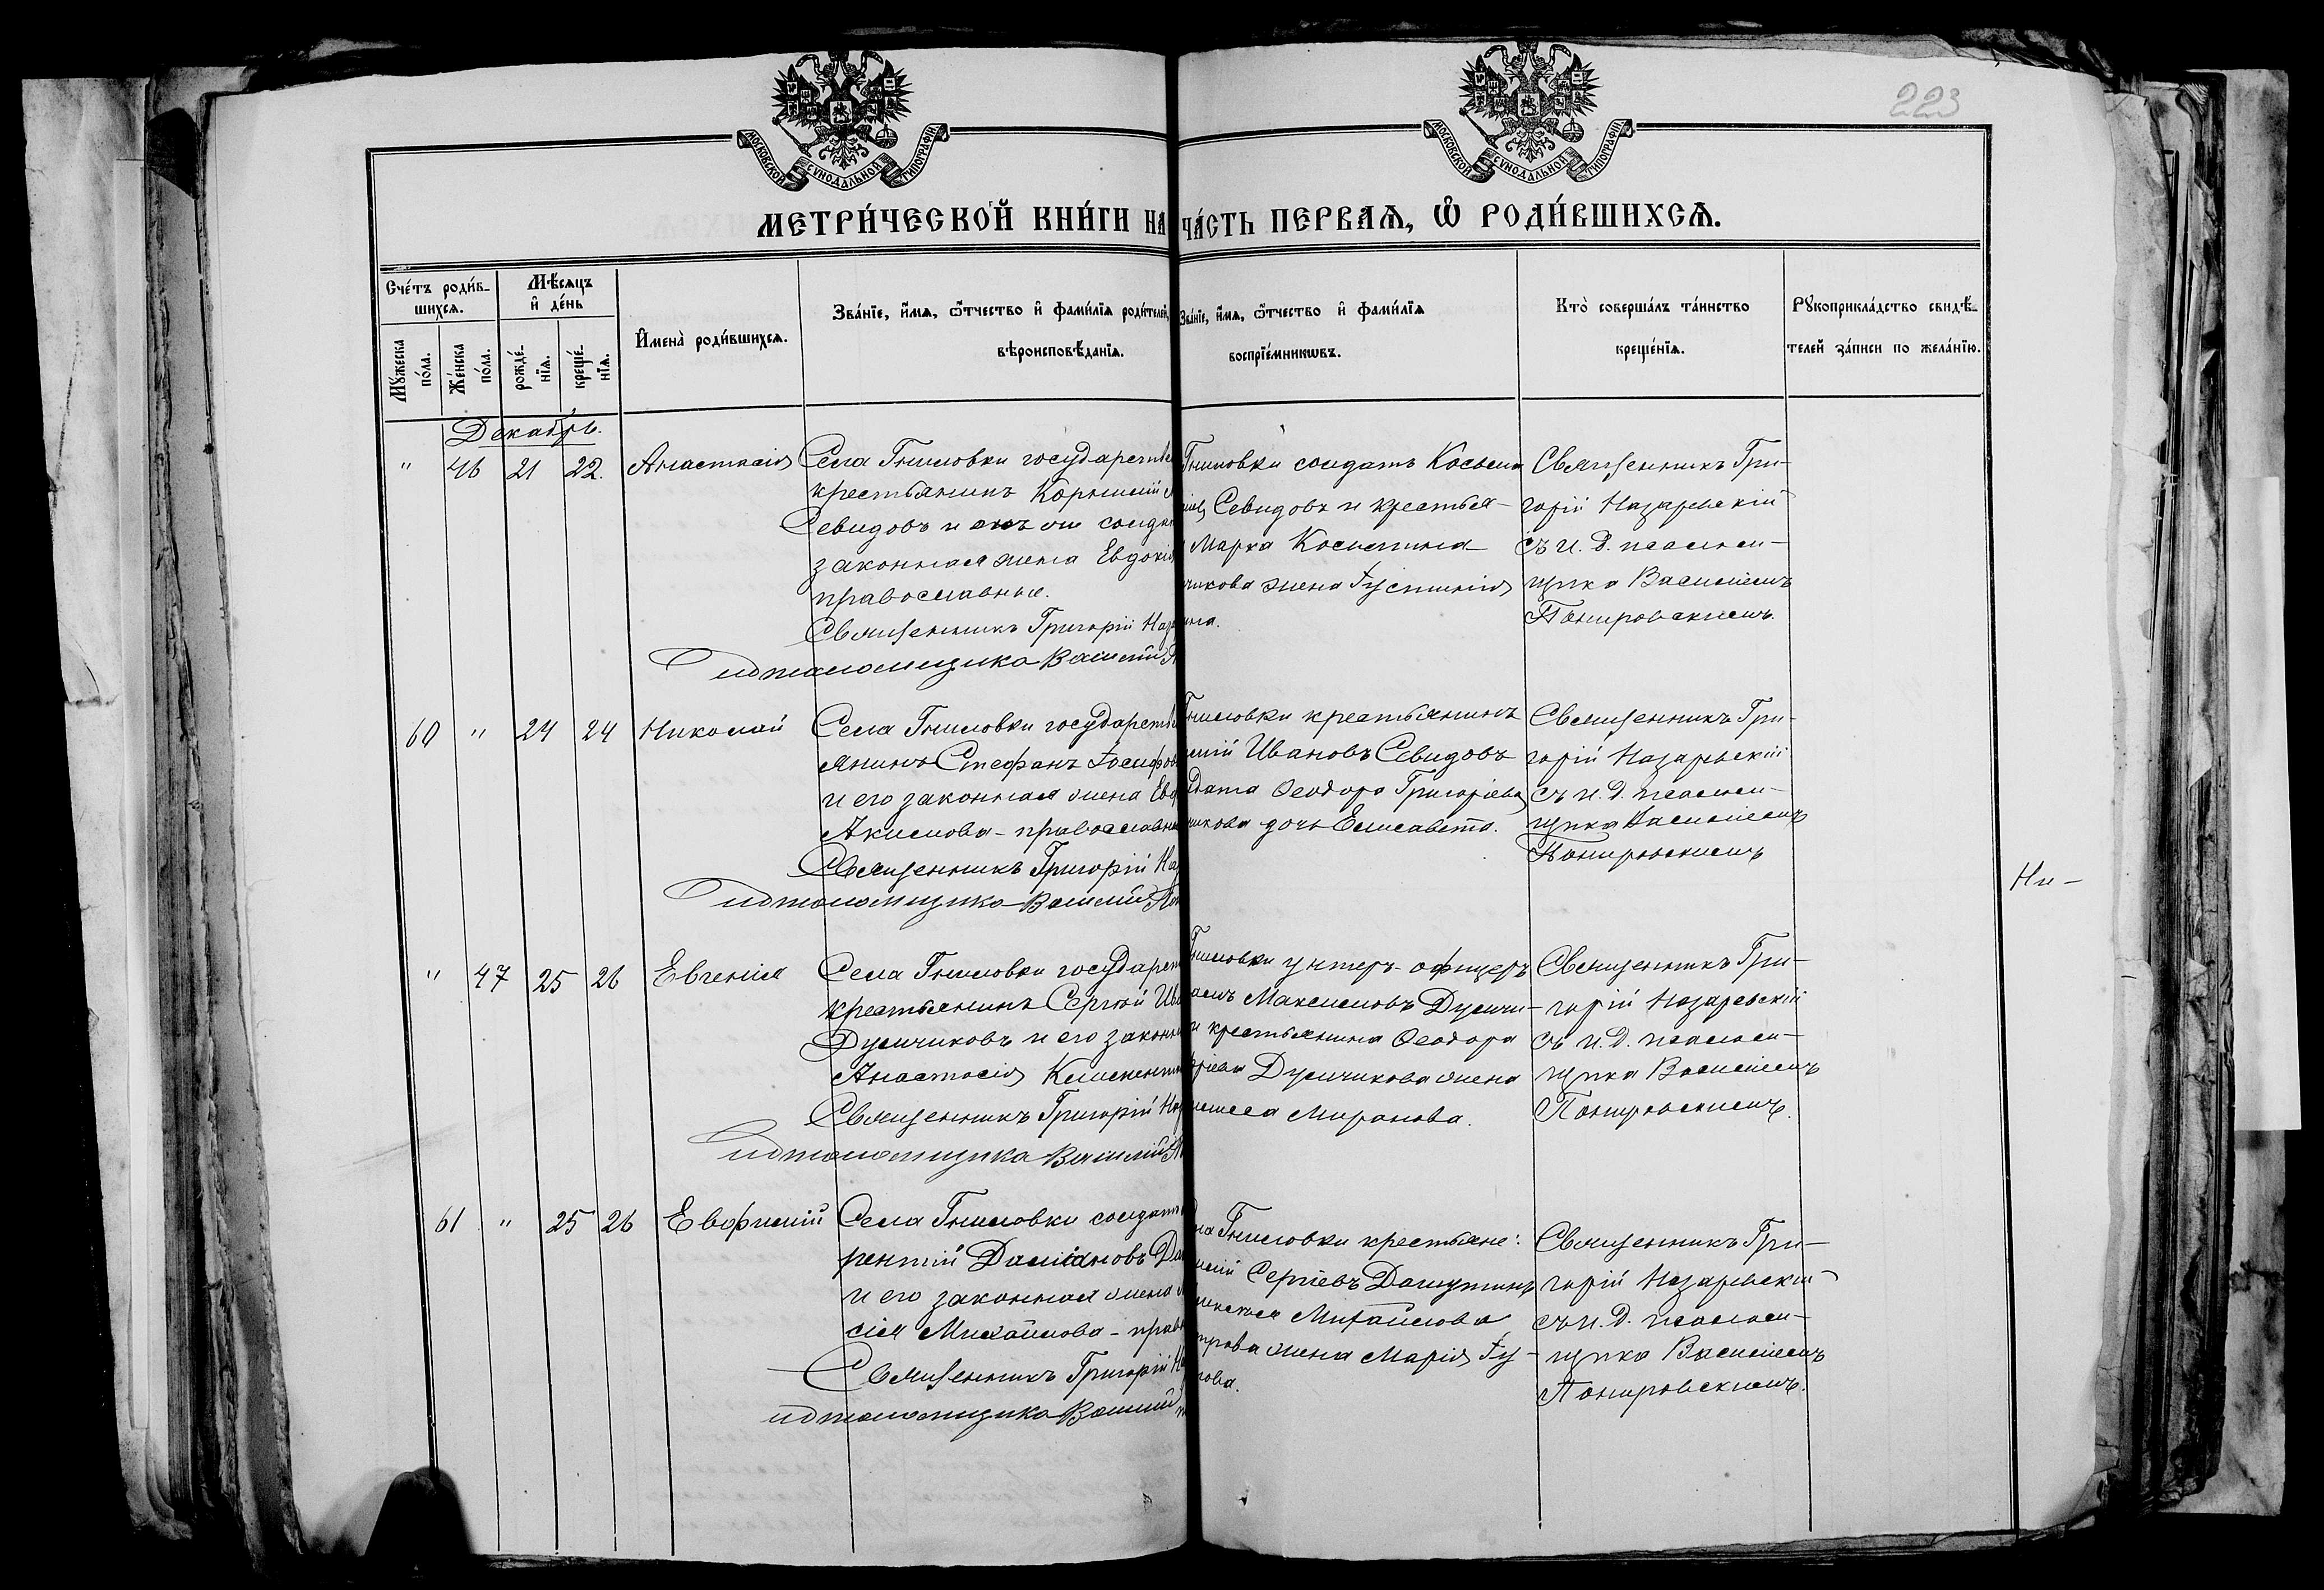 223
МОСКОВСКОЙ СѴНОДАЛЬНОЙ ТИПОГРАФІИ
МОСКОВСКОЙ СѴНОДАЛЬНОЙ ТИПОГРАФІИ
МЕТРИ́ЧЕСКОЙ КНИ́ГИ НА
ЧА́СТЬ ПЕРВАѦ, Ѡ РОДИ́ВШИХСѦ.
Сче́тъ роди́в-
шихсѧ.
Мꙋ́жеска
по́ла.
Же́нска
по́ла.
Мѣ́сѧцъ
и҆ де́нь
рожде́-
нїѧ.
креще́-
нїѧ.
И҆мена̀ роди́вшихсѧ.
Зва́нїе, и҆́мѧ, ѻ҆́тчество и҆ фами́лїѧ роди́телей,
вѣроисповѣ́данїѧ.
Зва́нїе, и҆́мѧ, ѻ҆́тчество и҆ фами́лїѧ
воспрїе́мникѡвъ.
Кто̀ соверша́лъ та́инство
креще́нїѧ.
Рꙋкоприкла́дство свидѣ́-
телей за́писи по жела́нїю.
Декабрь.
" 46 21 22. Анастасія
Села Гниловки государств
крестьянинъ
Севидовъ и солда
законная жена Евдокія
православные.
Священникъ Григорій Наз
псаломщика Василій
Гниловки солдатъ Косьма
Севидовъ и крестья-
Марка
чикова жена Іустинія
Священникъ Гри-
горій Назаревскій
съ и. д. псалом-
щика Василіемъ
Понировскимъ.
60 " 24 24 Николай
Села Гниловки государств
янинъ Стефанъ Іосифов
и его законная жена Евд
Акимова - православн
Священникъ Григорій Наз
псаломщика Василій По
Гниловки крестьянинъ
Ивановъ Севидовъ
Ѳеодора Григоріева
чикова дочь Елисавета.
Священникъ Гри-
горій Назаревскій
съ и. д. псалом-
щика Василіемъ
Понировскимъ
Ни-
" 47 25 26 Евгенія
Села Гниловки государст
крестьянинъ Сергѣй Ива
Думчиковъ и его законн
Анастасія Климент
Священникъ Григорій Наз
псаломщика Василій
Гниловки унтеръ-офицеръ
Максимовъ Думчи-
и крестьянина Ѳеодора
Думчикова жена
Миронова.
Священникъ Гри-
горій Назаревскій
съ и. д. псалом-
щика Василіемъ
Понировскимъ.
61 " 25 26 Евфимій
Села Гниловки солдатъ
рентій Даміановъ Да
и его законная жена
сія Михайлова - прав
Священникъ Григорій На
псаломщика Василій
Гниловки крестьяне:
Сергіевъ Дашутинъ
Михайлова
жена Марія Гу-
Священникъ Гри-
горій Назаревскій
съ и. д. псалом-
щика Василіемъ
Понировскимъ.